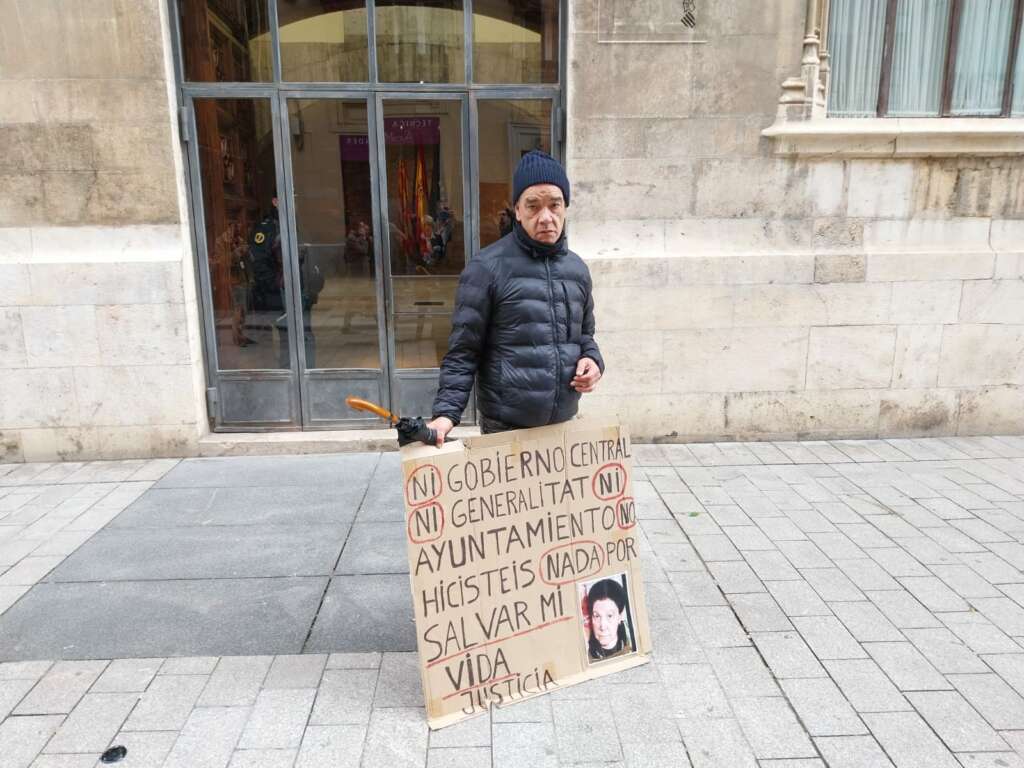 TÈCNICA
NI GOBIERNO CENTRAL
NI GENERALITAT NI
AYUNTAMIENTO NO
HICISTEIS NADA POR
SALVAR MI
VIDA
JUSTICIA